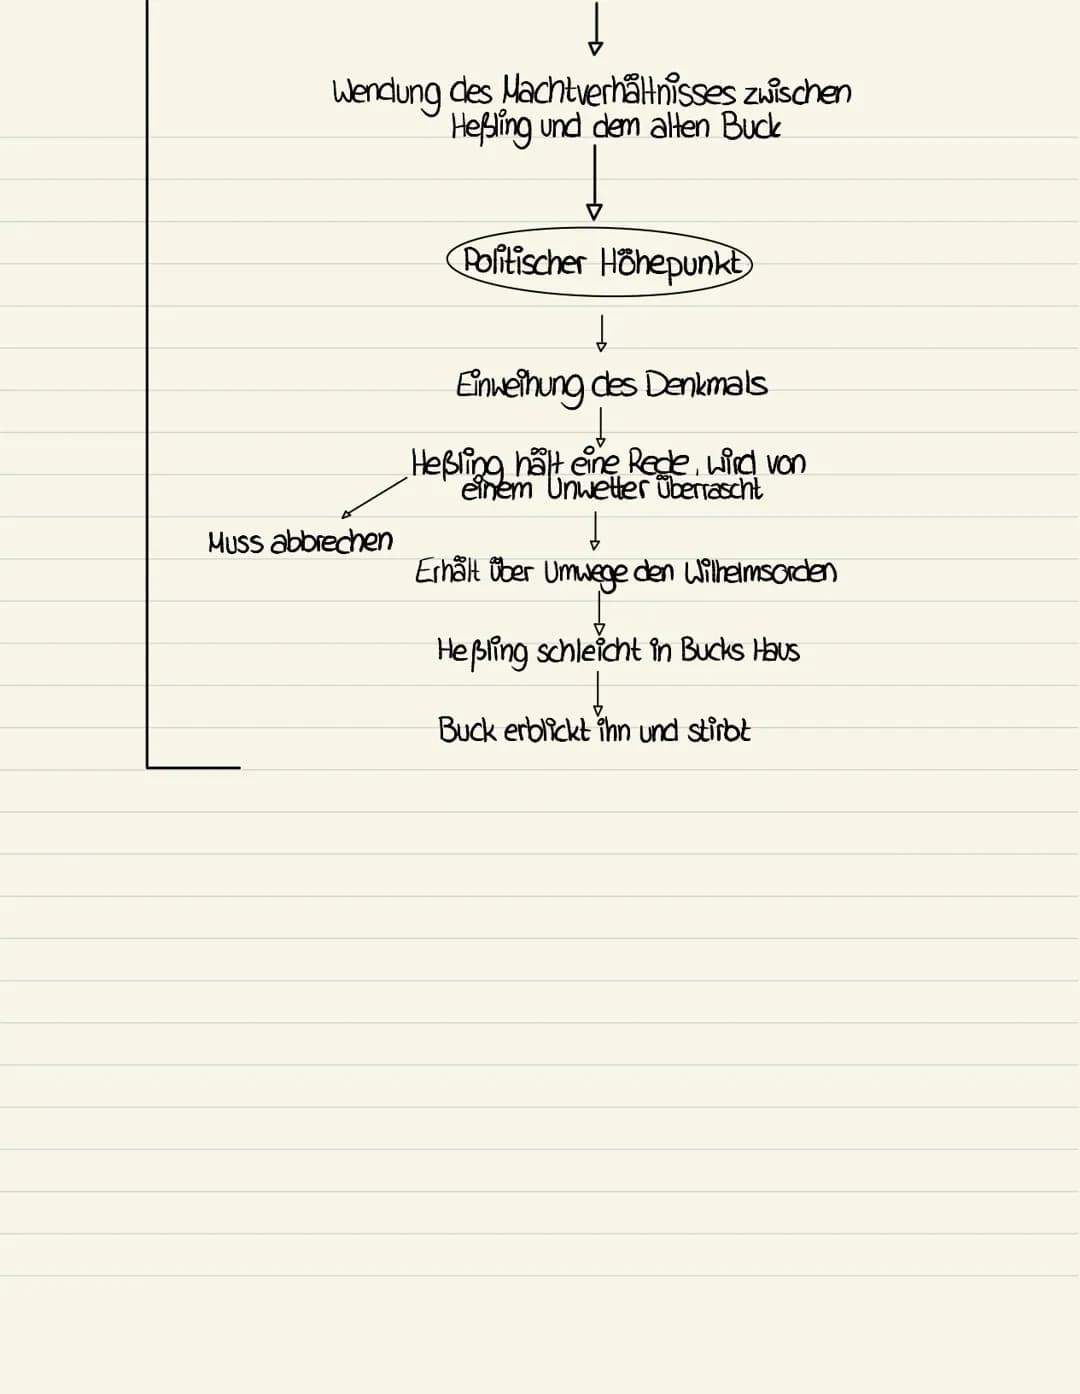 Wendung des Machtverhältnisses zwischen
Heßling und dem alten Buck
Politischer Höhepunkt
Einweihung des Denkmals
Heßling hält eine Rede, wird von
einem Unwetter überrascht
Muss abbrechen
Erhält über Umwege den Wilhelmsorden
Heßling schleicht in Bucks Haus
Buck erblickt ihn und stirbt